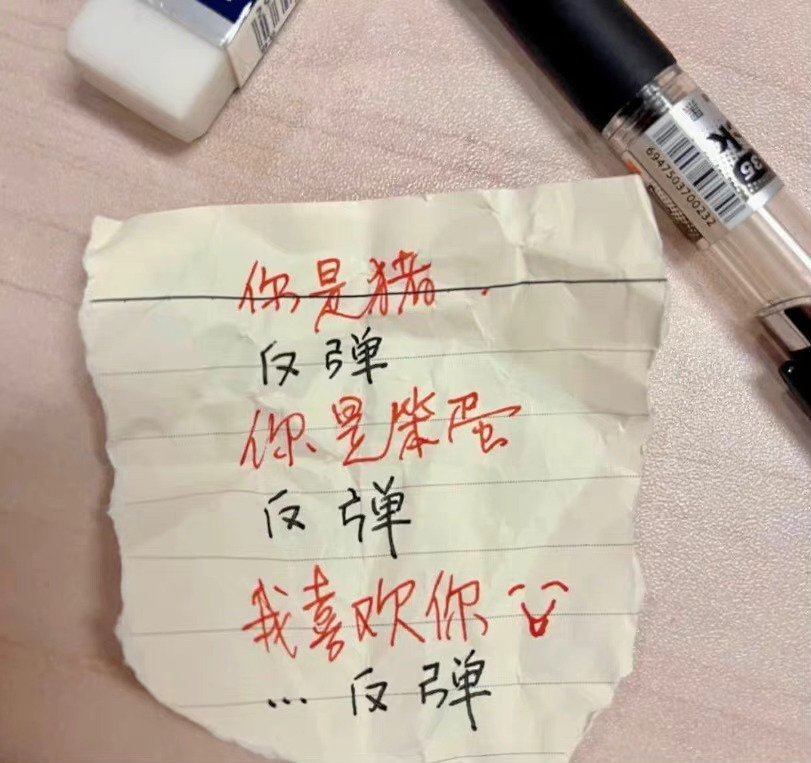 你是猪.
反弹
你是笨蛋
反弹
我喜欢你
...反弹
6947503700232
35